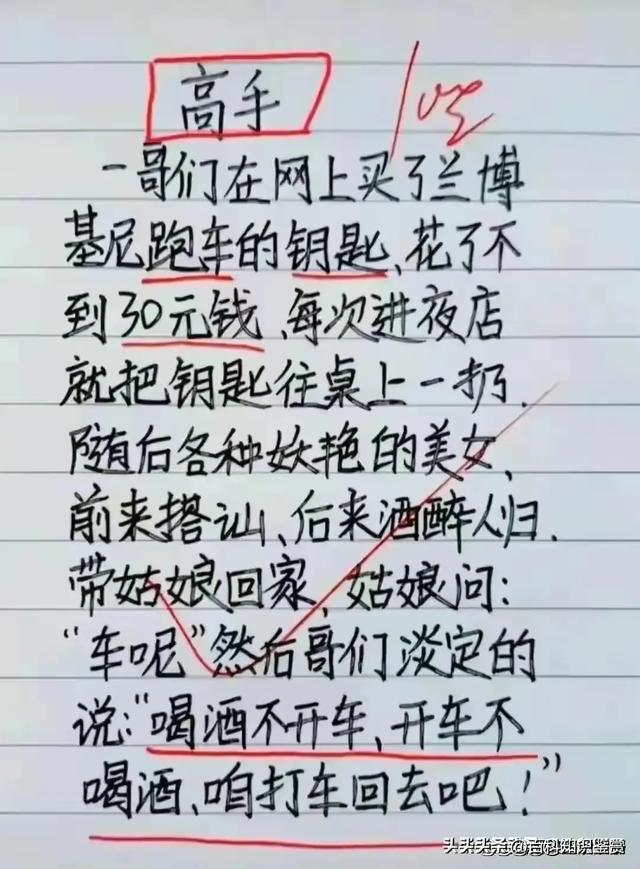 高手
一哥们在网上买了兰博
基尼跑车的钥匙、花了不
到30元钱、每次进夜店
就把钥匙往桌上一扔.
随后各种妖艳的美女、
前来搭讪、后来酒醉人归.
带姑娘回家,姑娘问:
“车呢”然后哥们淡定的
说:“喝酒不开车、开车不
喝酒、咱打车回去吧!”